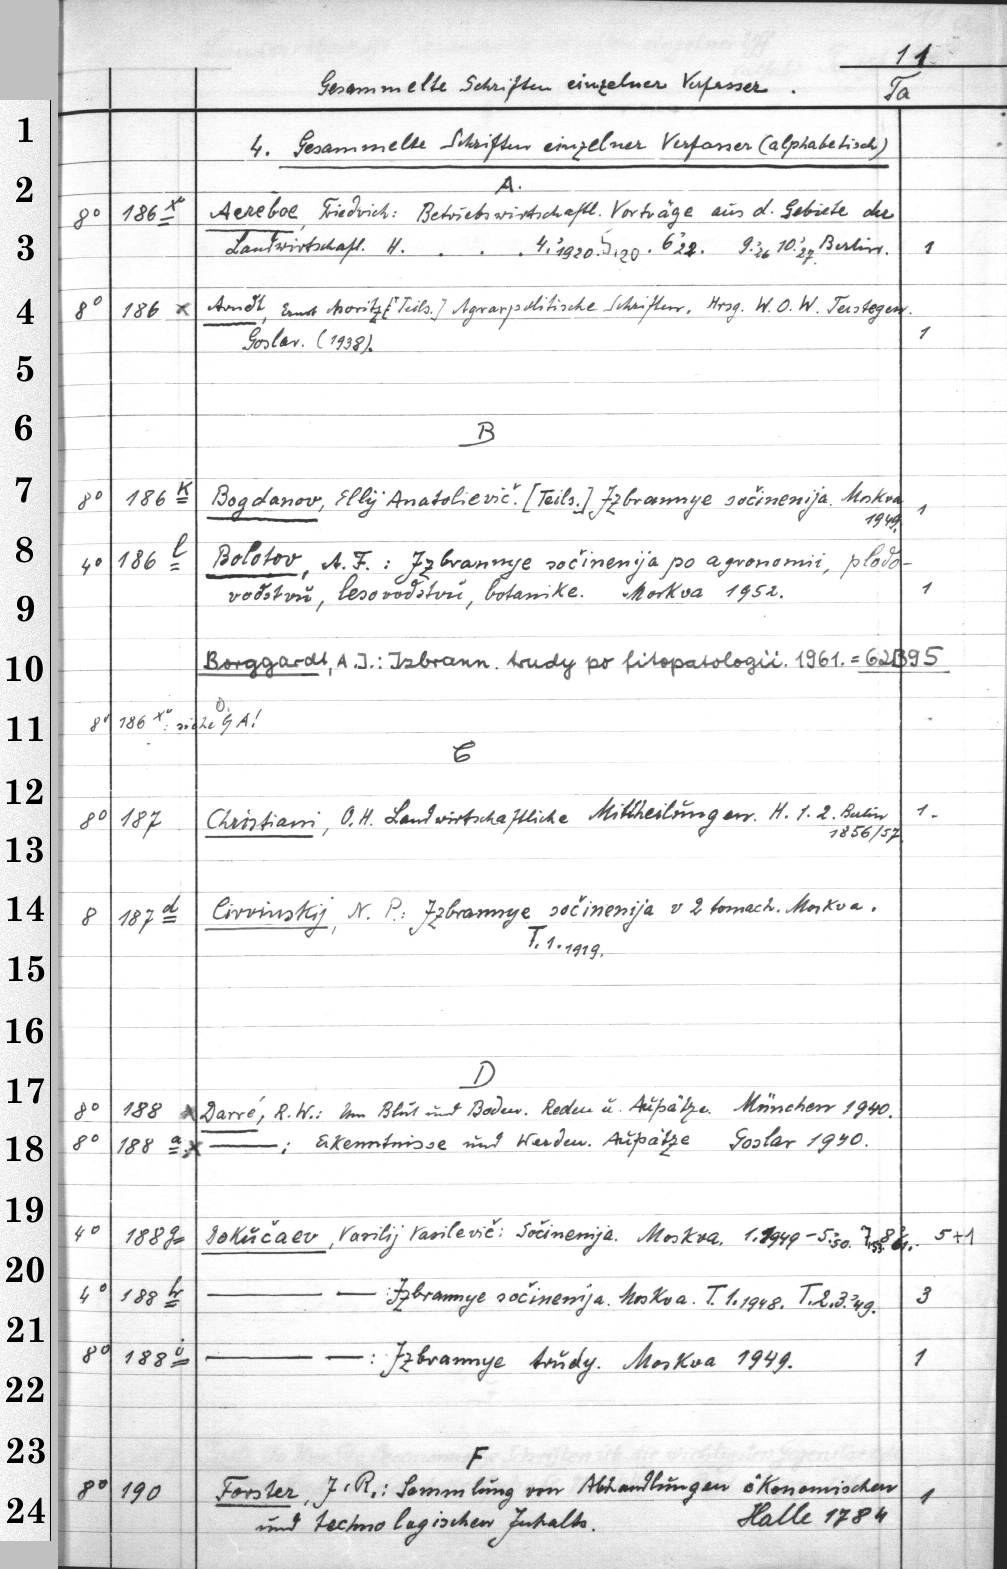 11
Gesammelte Schriften einzelner Verfasser.
Ta
1
4. Gesammelte Schriften einzelner Verfasser (alphabetisch)
2
A.
8° 186 x Aereboe, Friedrich: Betriebswirtschaftl. Vorträge aus d. Gebiete der
3
Landwirtschaft. H. . . . 4.'1920. 5.'20. 6'22. 9.'26 10.'27. Berlin. 1
4
8° 186 x Arndt, Ernst Moritz [Teils.] Agrarpolitische Schriften. Hrsg. W. O. W. Terstegen.
Goslar. (1938). 1
5
6
B
7
8° 186 k Bogdanov, Ellij Anatolievič. [Teils.] Izbrannye sočinenija. Moskva 1
1949.
8
4° 186 l Bolotov, A. F.: Izbrannye sočinenija po agronomii, plodo-
9
vodstvu, lesovodstvu, botanike. Moskva 1952. 1
10
Borggardt, A. I.: Izbrann. trudy po fitopatologii. 1961. = 62B95
11
8° 186 siehe GA!
C
12
8° 187 Christiani, O. H. Landwirtschaftliche Mittheilungen. H. 1. 2. Berlin 1.
1856/57.
13
14
8 187 d Cirvinskij, N. P.: Izbrannye sočinenija v 2 tomach. Moskva.
T. 1. 1919.
15
16
17
D
8° 188 x Darré, R. W.: Um Blut und Boden. Reden u. Aufsätze. München 1940.
18
8° 188 a x ——: Erkenntnisse und Werden. Aufsätze Goslar 1940.
19
4° 188 g Dokučaev, Vasilij Vasilevič: Sočinenija. Moskva. 1. 1949 – 5.'50. 7.'53 8.'61. 5+1
20
4° 188 h —— — Izbrannye sočinenija. Moskva. T. 1. 1948. T. 2. 3.'49. 3
21
8° 188 i —— —: Izbrannye trudy. Moskva 1949. 1
22
23
F
8° 190 Forster, J. R.: Sammlung von Abhandlungen ökonomischen 1
24
und technologischen Inhalts. Halle 1784